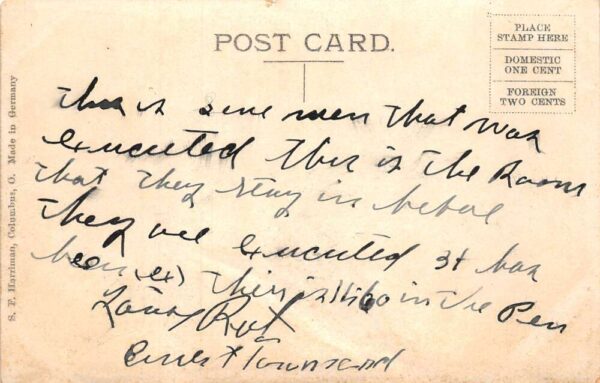 POST CARD.
PLACE
STAMP HERE
DOMESTIC
ONE CENT
FOREIGN
TWO CENTS
S. F. Harriman, Columbus, O. Made in Germany
this is some men that was
executed this is the Room
that they stay in before
they are executed 34 has
been (ex) in the Pen
Townsend